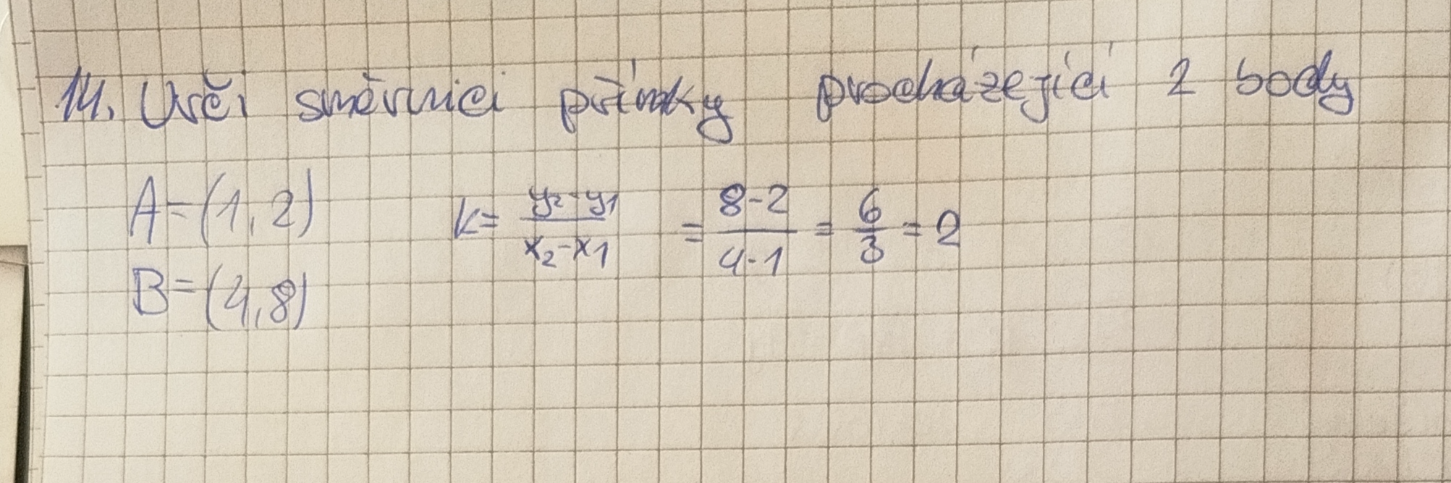 14. Urči směrnici přímky procházející 2 body
A=(1,2) k= y2-y1 / x2-x1 = 8-2 / 4-1 = 6/3 = 2
B=(4,8)